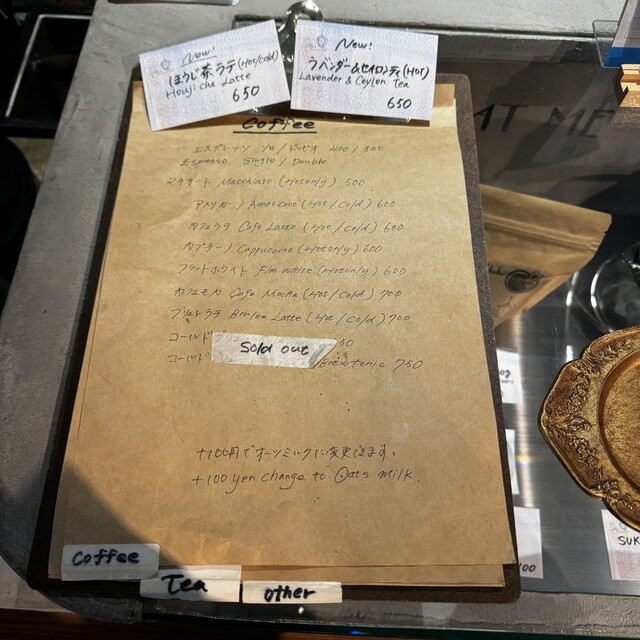 New!
ほうじ茶ラテ(Hot/Cold)
Houjicha Latte
650
New!
ラベンダー&セイロンティ(HOT)
Lavender & Ceylon Tea
650
Coffee
エスプレッソ ソロ/ドッピオ 400/500
Espresso Single/Double
マキアート Macchiato (Hotonly) 500
アメリカーノ Americano (Hot/Cold) 600
カフェラテ Cafe Latte (Hot/Cold) 600
カプチーノ Cappuccino (Hotonly) 600
フラットホワイト Flat White (Hotonly) 600
カフェモカ Cafe Mocha (Hot/Cold) 700
ブリュレラテ Brulee Latte (Hot/Cold) 700
コールド 50
Sold out
コールド Brewtonic 750
+100円でオーツミルクに変更出来ます。
+100 yen change to Oats milk.
Coffee
Tea
other
AT ME
SUK